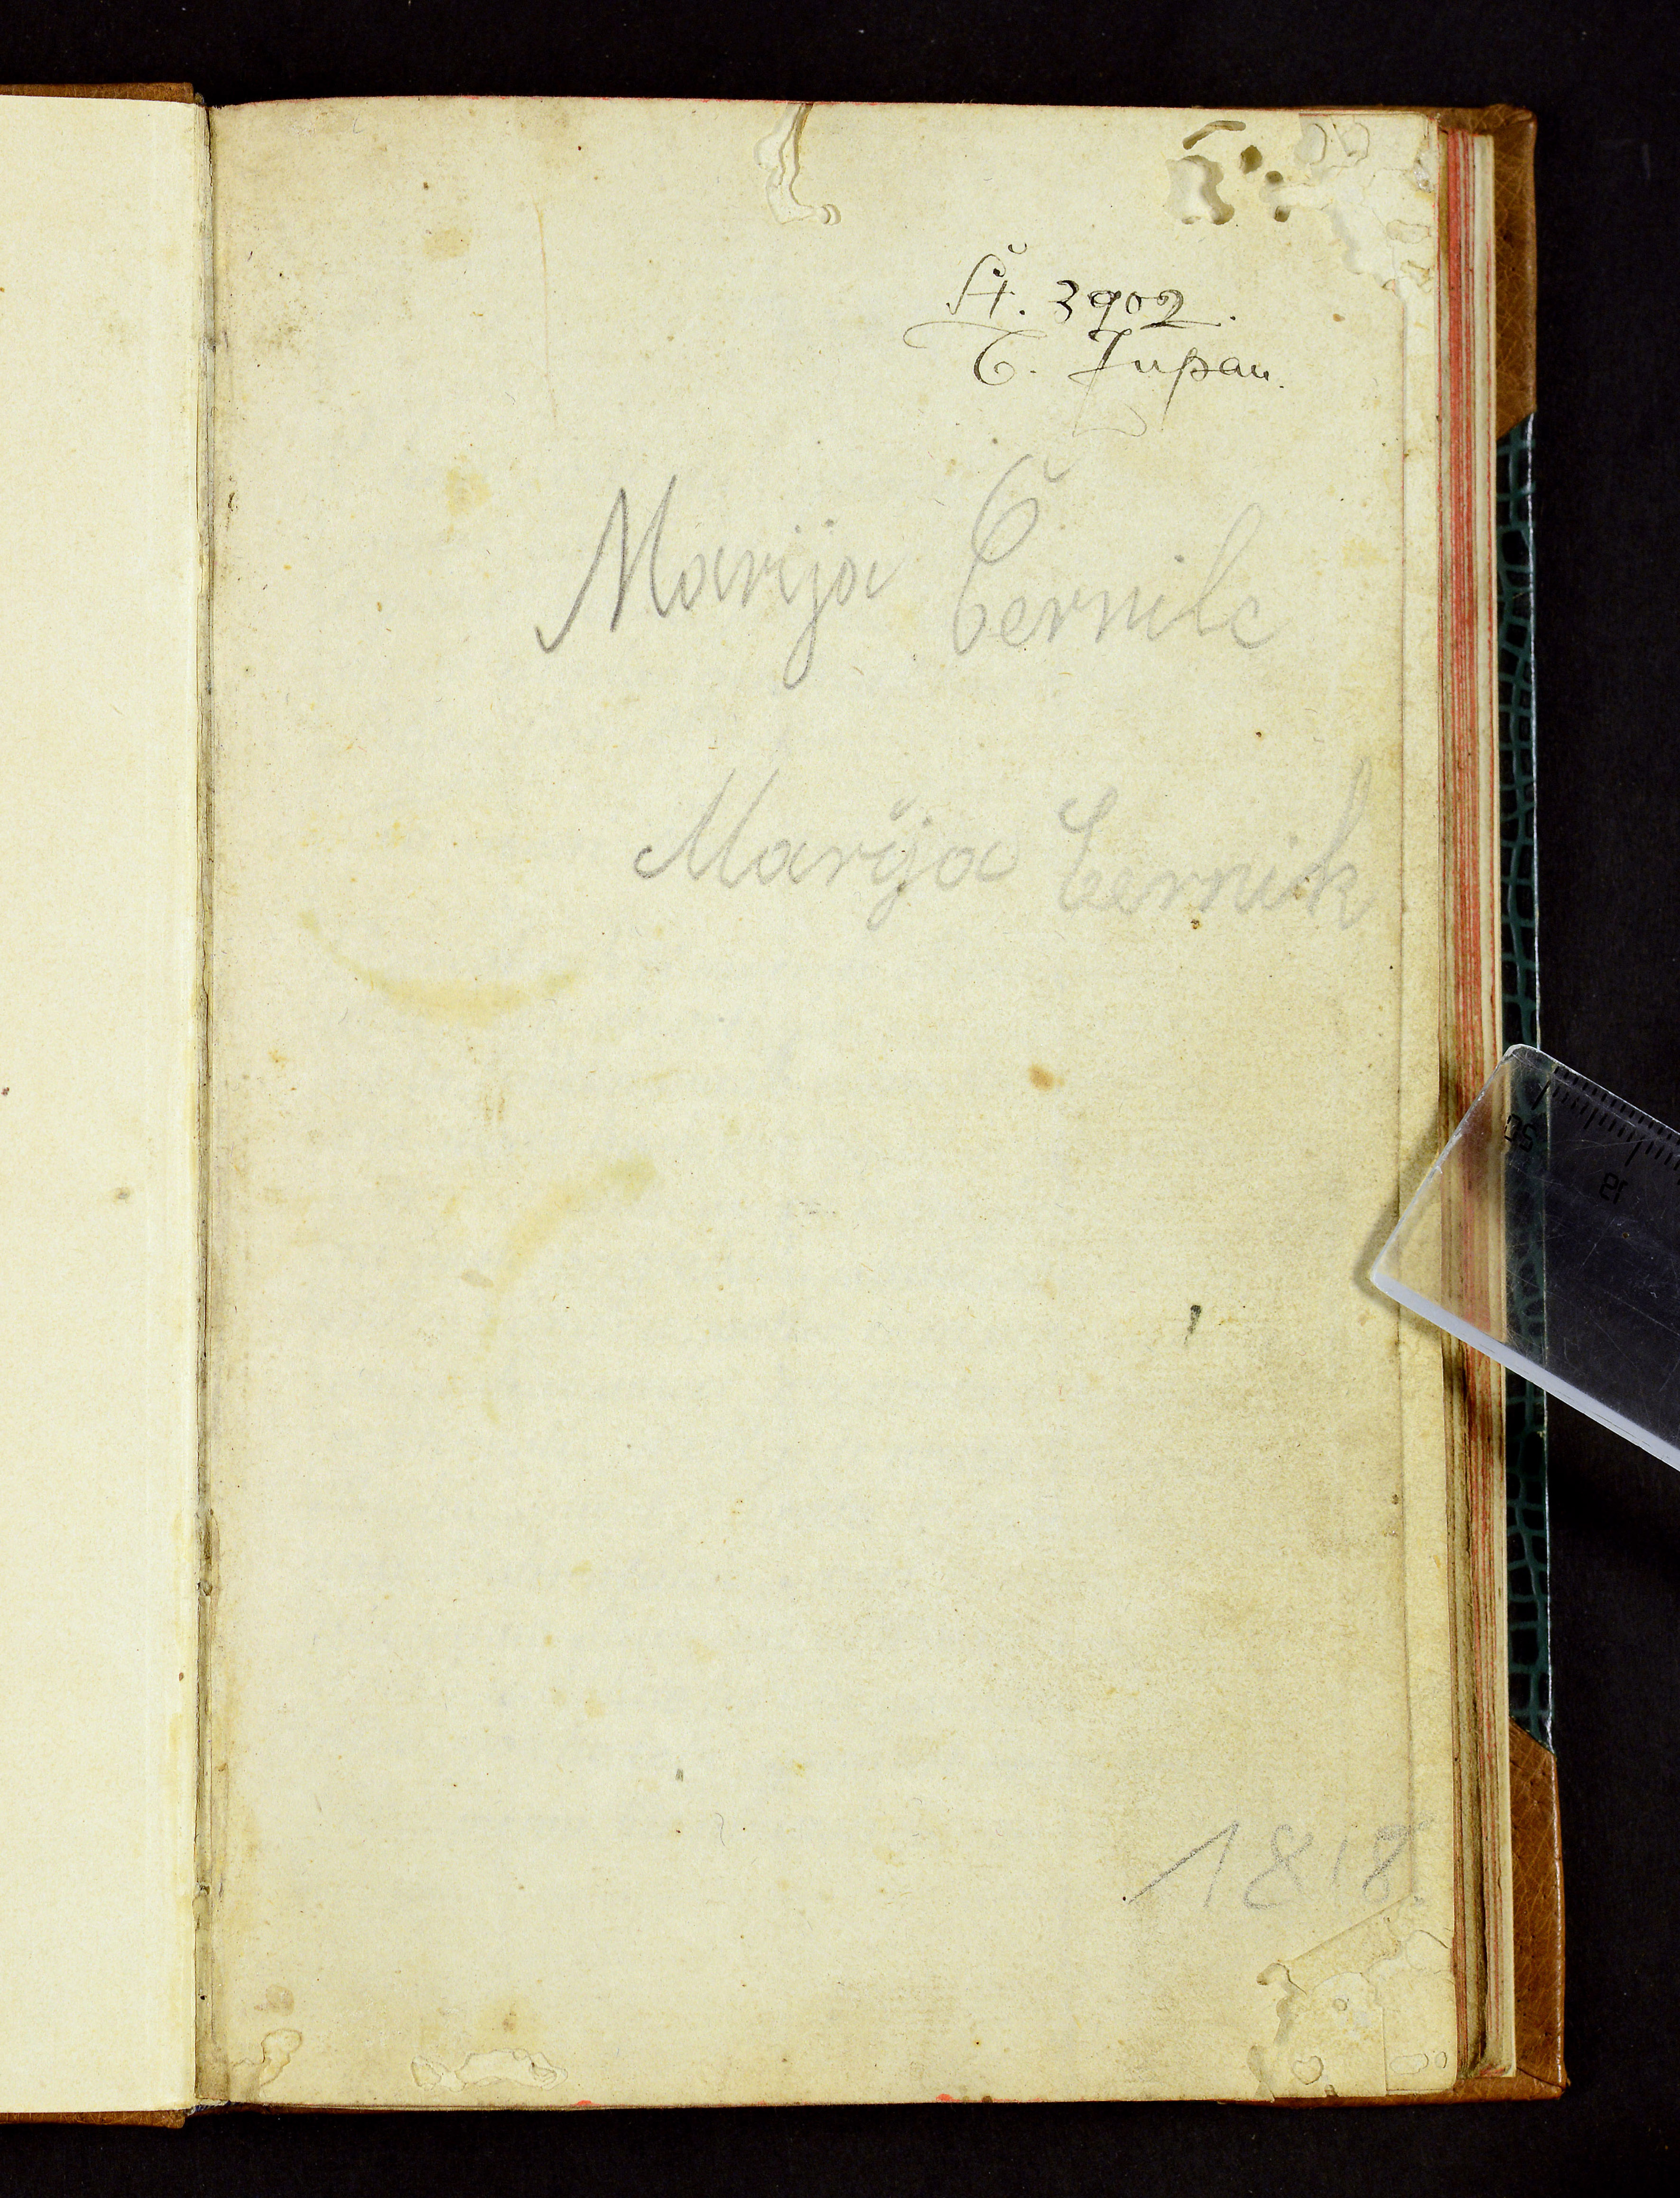 Št. 3902.
T. Zupan.
Marija Černilc
Marija Černik
1818.